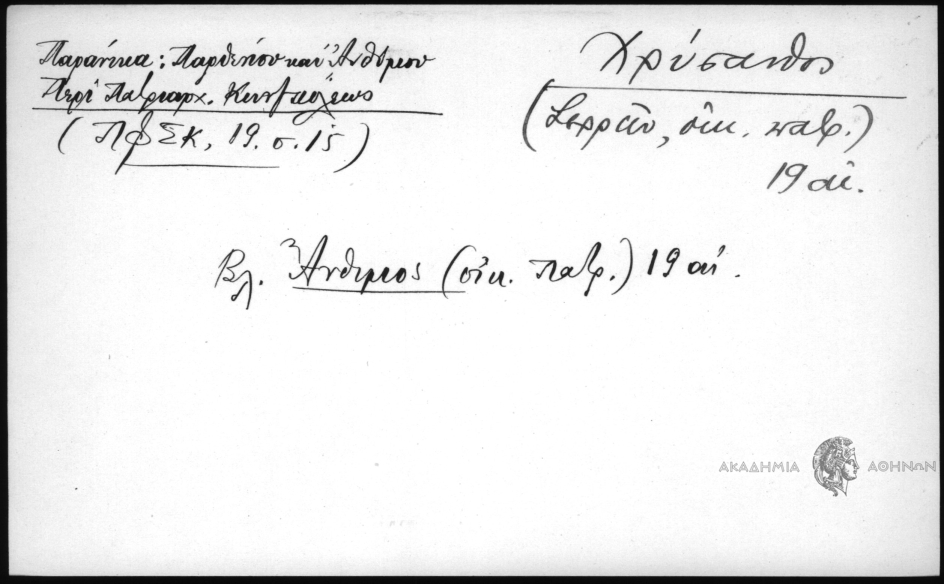 Παρανίκα: Παρθενίου καὶ Ἀνθίμου
Περὶ Πατριαρχ. Κων/πόλεως
(ΠΦΣΚ, 19. σ. 15)
Χρύσανθος
(Σερρῶν, οἰκ. πατρ.)
19 αἰ.
Βλ. Ἄνθιμος (οἰκ. πατρ.) 19 αἰ.
ΑΚΑΔΗΜΙΑ ΑΘΗΝΩΝ